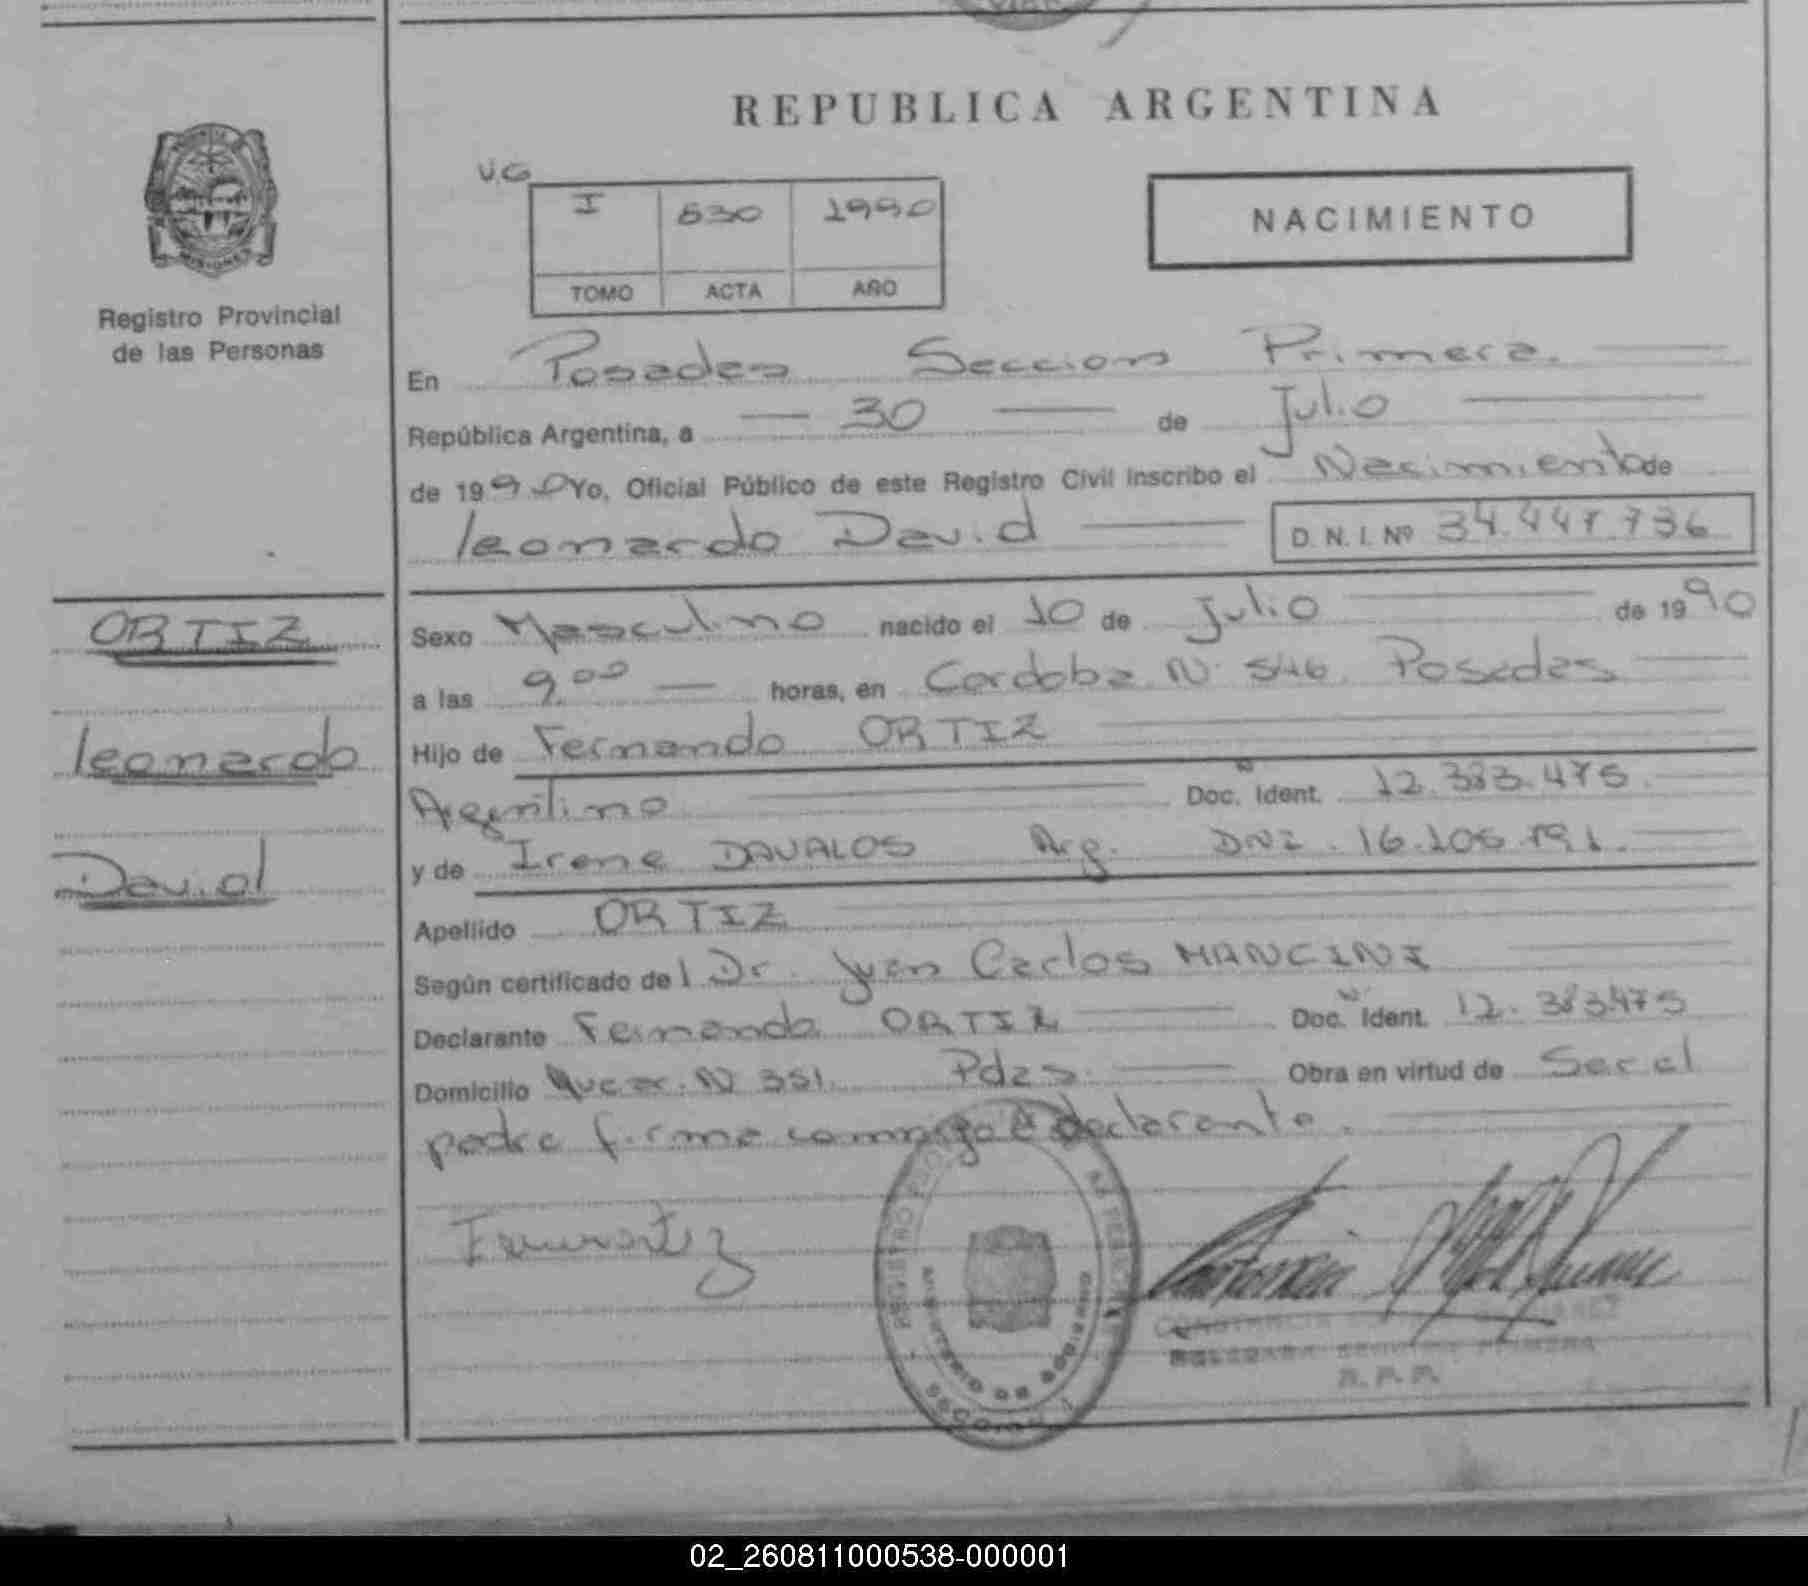 REPUBLICA ARGENTINA
MISIONES
Registro Provincial
de las Personas
V.G
I 530 1990
TOMO ACTA AÑO
NACIMIENTO
En Posadas Seccion Primera.
República Argentina, a 30 de Julio
de 1990 Yo, Oficial Público de este Registro Civil inscribo el Nacimiento de
leonardo David D.N.I. Nº 34.447.736
ORTIZ
leonardo
David
Sexo Masculino nacido el 10 de Julio de 1990
a las 9.00 horas, en Cordoba N. 546. Posadas
Hijo de Fernando ORTIZ
Argentino Doc. Ident. 12.383.475.
y de Irene DAVALOS Arg. DNI. 16.106.191.
Apellido ORTIZ
Según certificado de l Dr. Juan Carlos MANCINI
Declarante Fernando ORTIZ Doc. Ident. 12.383475
Domicilio N 351. Pdas. Obra en virtud de Ser el
padre firma conmigo el declarante.
REGISTRO
MINISTERIO DE GOBIERNO
SECCION 1
CONSTANCIA
DELEGADA SECCION PRIMERA
R. P. P.
02_260811000538-000001